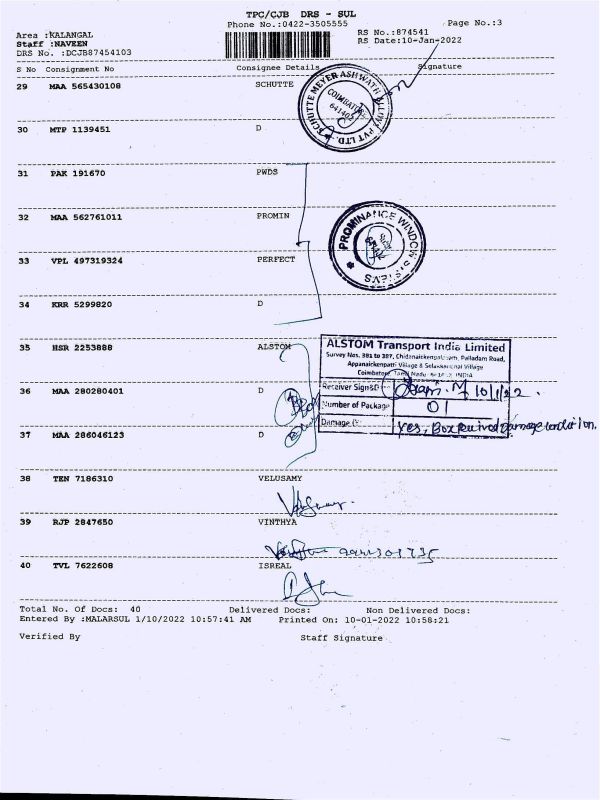 TPC/CJB DRS - SUL
Phone No.:0422-3505555
Page No.:3
Area :KALANGAL
RS No.:874541
Staff :NAVEEN
RS Date:10-Jan-2022
DRS No. :DCJB87454103
S No Consignment No Consignee Details Signature
29 MAA 565430108 SCHUTTE
SCHUTTE MEYER ASHWATH ALLOY PVT LTD.
COIMBATORE
641402
30 MTP 1139451 D
31 PAK 191670 PWDS
32 MAA 562761011 PROMIN
PROMINANCE WINDOW SYSTEMS
33 VPL 497319324 PERFECT
34 KRR 5299820 D
35 HSR 2253888 ALSTOM
ALSTOM Transport India Limited
Survey Nos. 381 to 387, Chidanaickenpalayam, Palladam Road,
Appanaickenpatti Village & Selakkarichal Village
Coimbatore, Tamil Nadu INDIA
36 MAA 280280401 D
Receiver Sign&D 10/1/22.
Number of Package 01
37 MAA 286046123 D
Damage (Y yes, Box
38 TEN 7186310 VELUSAMY
39 RJP 2847650 VINTHYA
40 TVL 7622608 ISREAL
Total No. Of Docs: 40 Delivered Docs: Non Delivered Docs:
Entered By :MALARSUL 1/10/2022 10:57:41 AM Printed On: 10-01-2022 10:58:21
Verified By Staff Signature